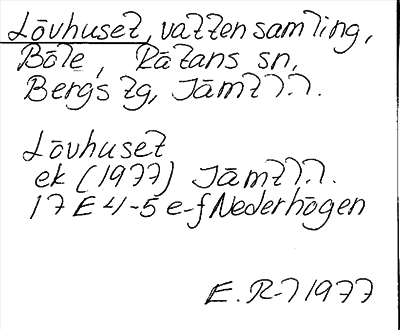 Lövhuset, vattensamling,
Böle, Rätans sn,
Bergs tg, Jämtl.
Lövhuset
ek (1977) Jämtl.
17 E 4-5 e-f Nederhögen
E. R-l 1977